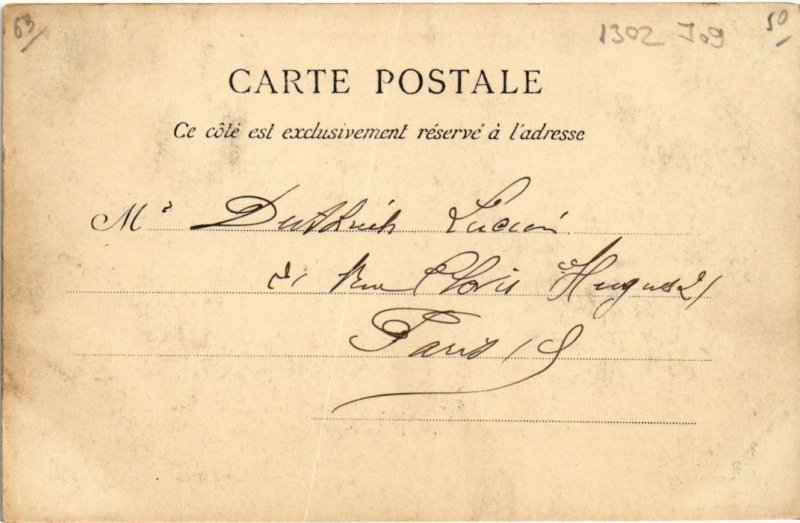 63
1302 J09
50
CARTE POSTALE
Ce côté est exclusivement réservé à l'adresse
Mr Lucien
21 Rue Clovis Hugues 21
Paris 19